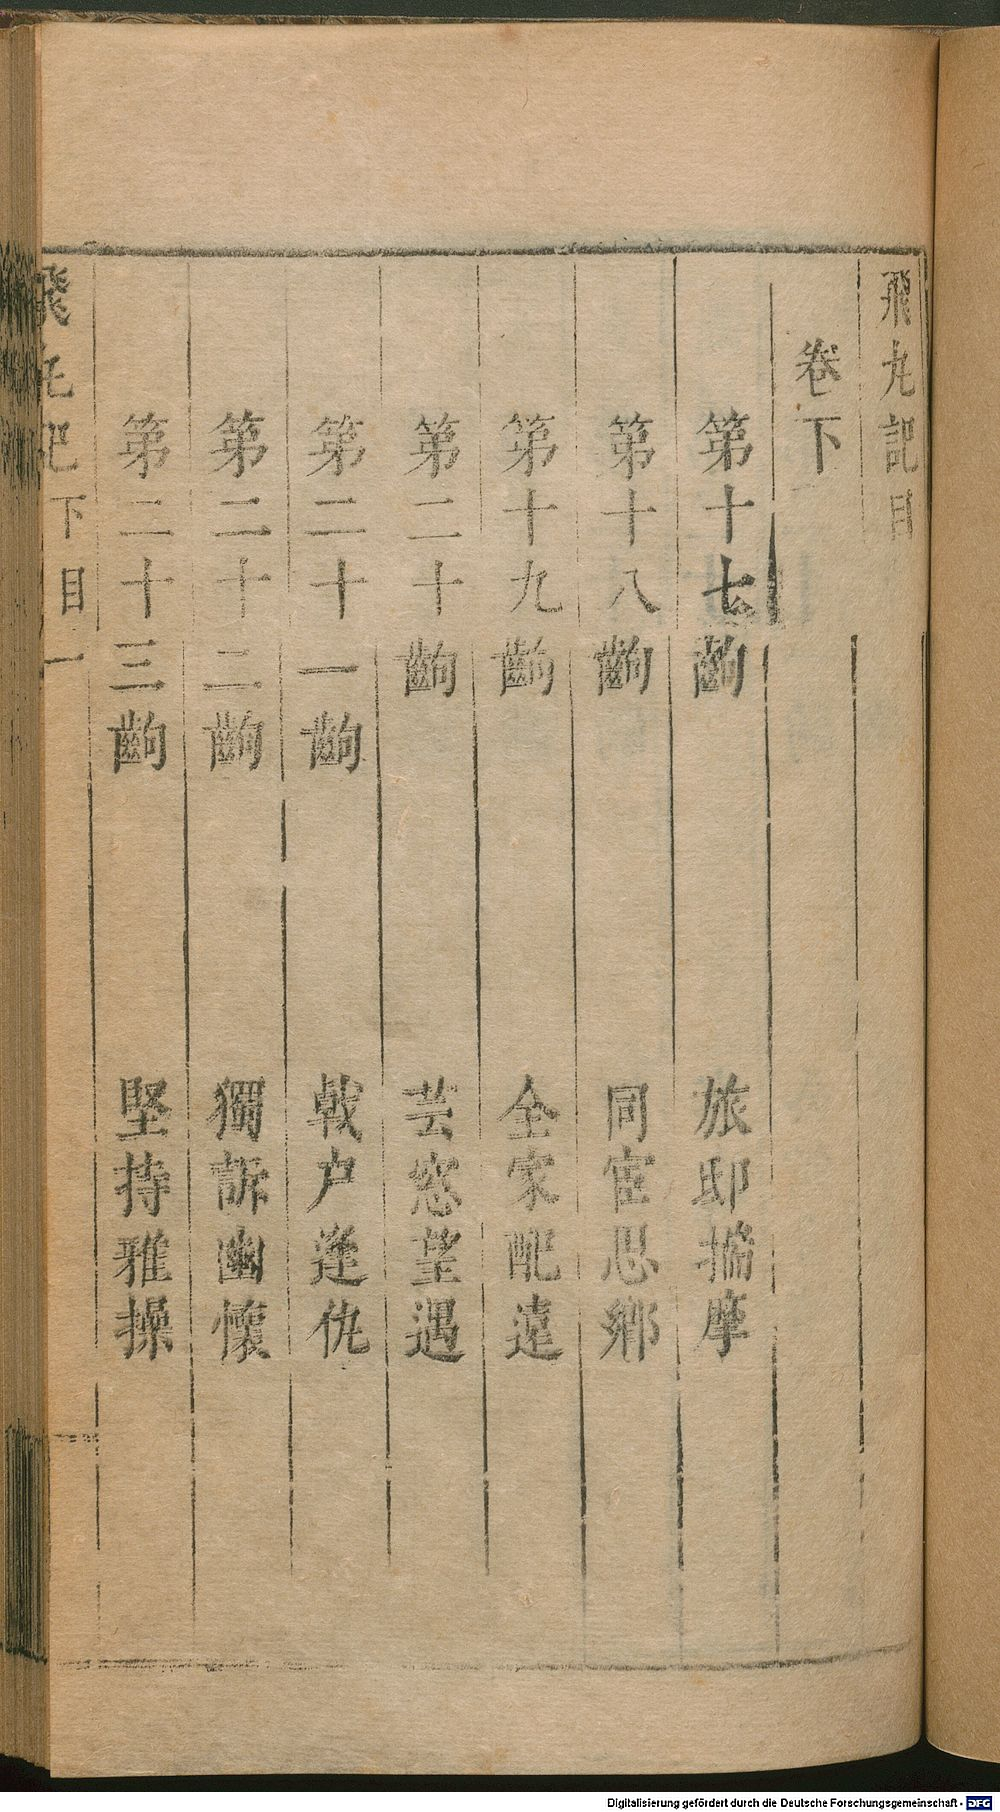 飛丸記目
卷下
第十七齣 旅邸揣摩
第十八齣 同宦思鄉
第十九齣 全家配遠
第二十齣 芸窓望遇
第二十一齣 戟户逢仇
第二十二齣 獨訴幽懷
第二十三齣 堅持雅操
飛丸記 下目 一
Digitalisierung gefördert durch die Deutsche Forschungsgemeinschaft - DFG